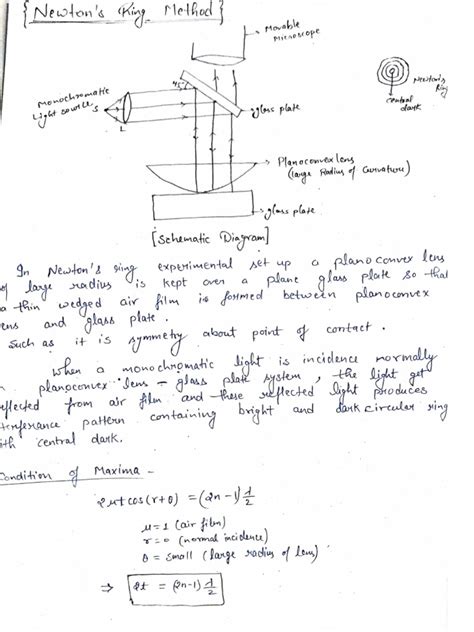 {Newton's Ring Method}
Movable
Microscope
45°
Monochromatic
light source
S
L
glass plate
Newton's
Ring
central
dark
Planoconvex lens
(large Radius of Curvature)
glass plate
[Schematic Diagram]
In Newton's ring experimental set up a planoconvex lens
of large radius is kept over a plane glass plate so that
a thin wedged air film is formed between planoconvex
lens and glass plate.
Such as it is symmetry about point of contact.
When a monochromatic light is incidence normally
planoconvex lens - glass plate system, the light get
reflected from air film and these reflected light produces
interference pattern containing bright and dark circular ring
with central dark.
Condition of Maxima -
2μt cos(r+θ) = (2n-1) λ/2
μ=1 (air film)
r=0 (normal incidence)
θ = small (large radius of lens)
⇒ 2t = (2n-1) λ/2